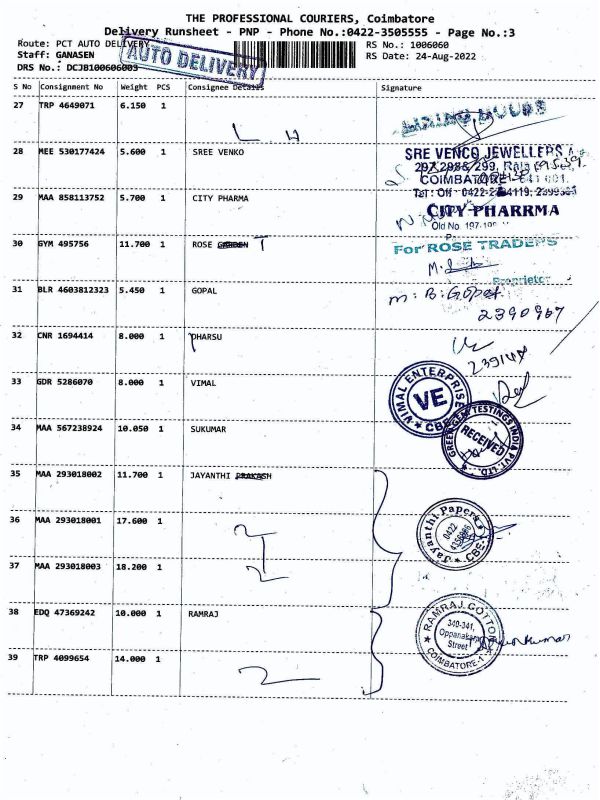 THE PROFESSIONAL COURIERS, Coimbatore
Delivery Runsheet - PNP - Phone No.:0422-3505555 - Page No.:3
Route: PCT AUTO DELIVERY
RS No.: 1006060
Staff: GANASEN
AUTO DELIVERY
RS Date: 24-Aug-2022
DRS No.: DCJB100606003
S No Consignment No Weight PCS Consignee Details Signature
27 TRP 4649071 6.150 1
L H
28 MEE 530177424 5.600 1 SREE VENKO
SRE VENCO JEWELLERS
COIMBATORE - 641 001.
29 MAA 858113752 5.700 1 CITY PHARMA
CITY PHARRMA
Old No
30 GYM 495756 11.700 1 ROSE GARDEN T
For ROSE TRADERS
Proprietor
31 BLR 4603812323 5.450 1 GOPAL
m: B: Gopal
2390967
32 CNR 1694414 8.000 1 DHARSU
33 GDR 5286070 8.000 1 VIMAL
VIMAL ENTERPRISE
VE
CBE
34 MAA 567238924 10.050 1 SUKUMAR
GREEN GEM TESTINGS INDIA PVT. LTD.
RECEIVED
35 MAA 293018002 11.700 1 JAYANTHI PRAKASH
36 MAA 293018001 17.600 1
Jayanthi Papers
0422
CBE
37 MAA 293018003 18.200 1
38 EDQ 47369242 10.000 1 RAMRAJ
RAMRAJ COTTON
340-341,
Oppanakara
Street
COIMBATORE-1
39 TRP 4099654 14.000 1